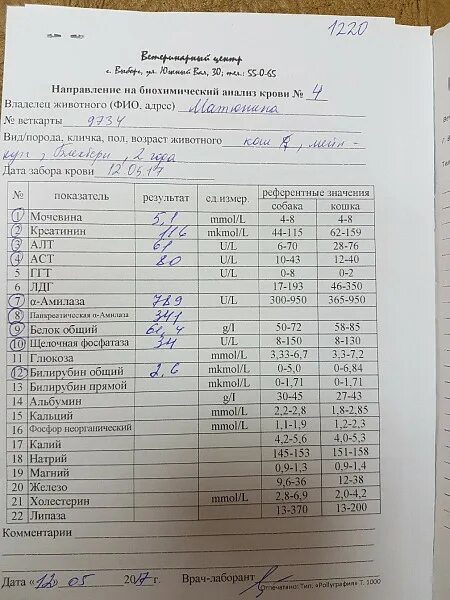 1220
Ветеринарный центр
г. Выборг, ул. Южный Вал, 30; тел.: 55-0-65
Направление на биохимический анализ крови № 4
Владелец животного (ФИО, адрес) Матюнина
№ веткарты 9734
Вид/порода, кличка, пол, возраст животного кош, мейн-
кун, Блекбери, 2 года
Дата забора крови 12.05.17
№ показатель результат ед.измер. референтные значения
собака кошка
1 Мочевина 5,1 mmol/L 4-8 4-8
2 Креатинин 116 mkmol/L 44-115 62-159
3 АЛТ 61 U/L 6-70 28-76
4 АСТ 80 U/L 10-43 12-40
5 ГГТ U/L 0-8 0-2
6 ЛДГ U/L 17-193 46-350
7 α-Амилаза 789 U/L 300-950 365-950
8 Панкреатическая α-Амилаза 341
9 Белок общий 61,4 g/l 50-72 58-85
10 Щелочная фосфатаза 34 U/L 8-150 8-130
11 Глюкоза mmol/L 3,33-6,7 3,3-7,2
12 Билирубин общий 2,6 mkmol/L 0-5,0 0-6,84
13 Билирубин прямой mkmol/L 0-1,71 0-1,71
14 Альбумин g/l 30-45 27-43
15 Кальций mmol/L 2,2-2,8 1,8-2,85
16 Фосфор неорганический mmol/L 1,1-1,9 1,2-2,3
17 Калий 4,2-5,6 4,0-5,3
18 Натрий 145-153 151-158
19 Магний 0,9-1,3 0,9-1,4
20 Железо 9,6-36 12-38
21 Холестерин mmol/L 2,8-6,9 2,0-4,2
22 Липаза 13-370 13-200
Комментарии
Дата «12» 05 2017 г. Врач-лаборант
Отпечатано: Тип. «Полиграфия» Т. 1000